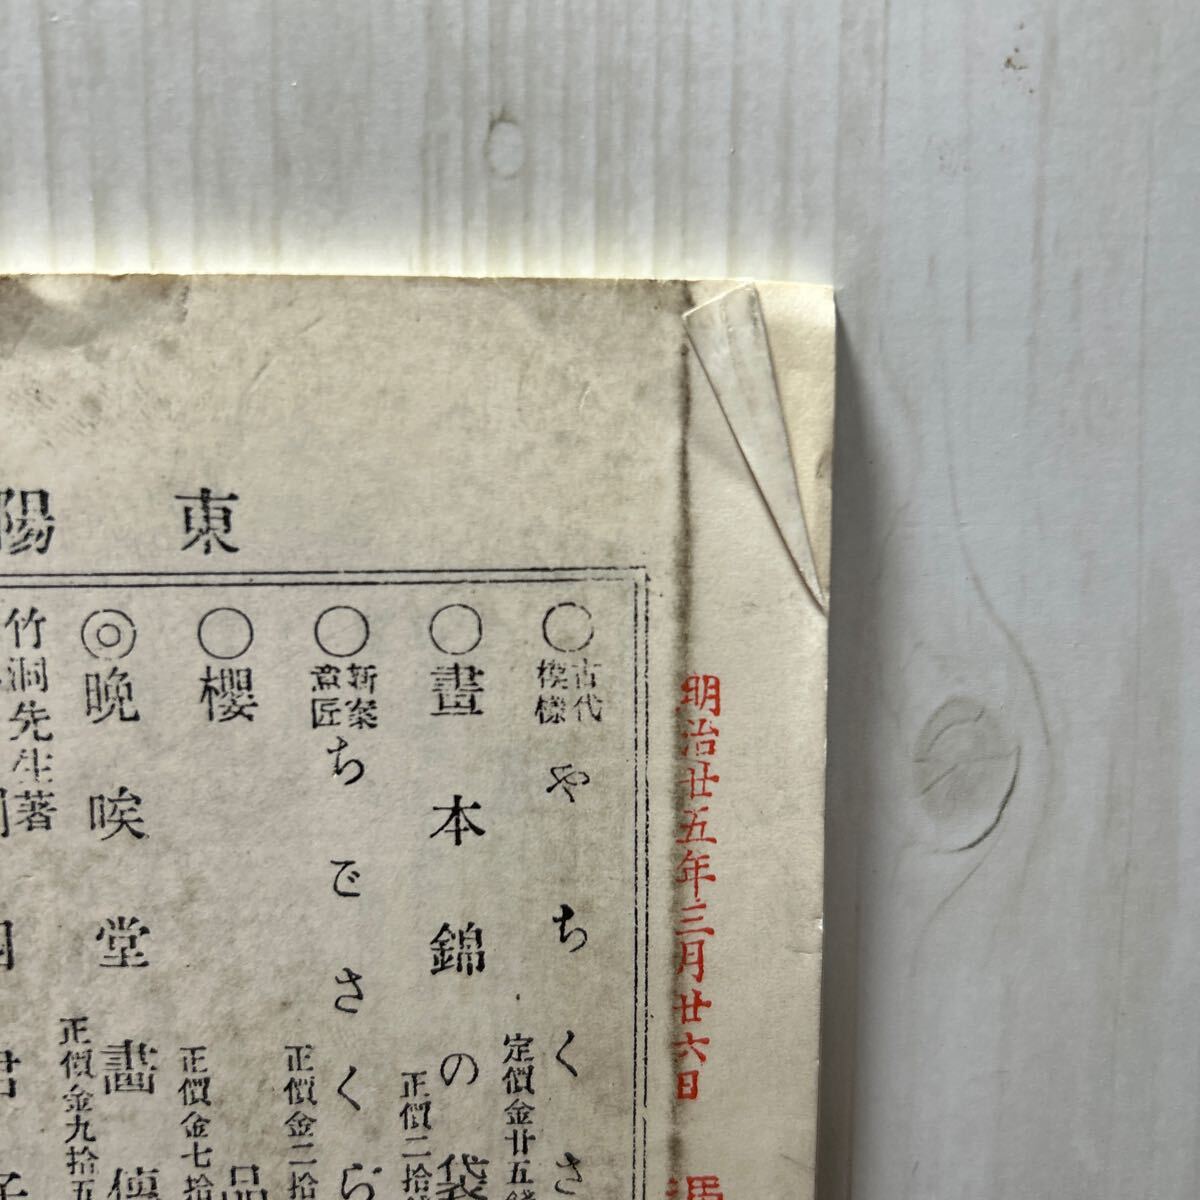 明治廿五年三月廿六日
東陽
○古代模樣やちくさ
定價金廿五錢
○畫本錦の袋
正價二拾
○新案意匠ちでさくら
正價金二拾
○櫻
品
正價金七拾
◎晩唉堂畫傳
正價金九拾五
竹洞先生著